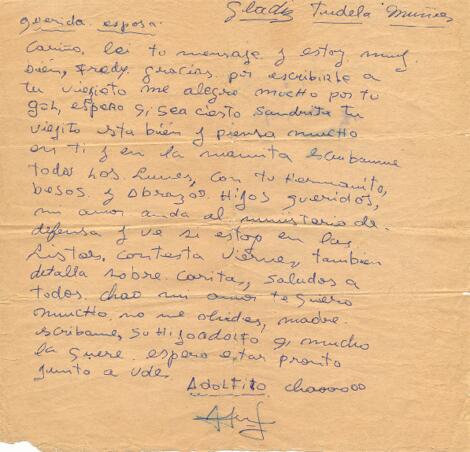 Gladiz Tudela Muñoz
querida esposa
Cariño, lei tu mensage y estoy muy
bien, Fredy gracias por escribirle a
tu viejito me alegre mucho por tu
gol, espero qi sea cierto Sandrita tu
viejito esta bién y piensa mucho
en ti y en la mamita escribanme
todos Los Lunes, con tu Hermanito,
besos y Abrazos Hijos queridos,
mi amor anda al ministerio de
defensa y ve si estoy en las
Listas, contesta Viernes, también
detalla sobre Carita, saludos a
todos chao mi amor te quero
muncho, no me olvides, madre
escribame, su Hijo adolfo qi mucho
la quere. espero estar pronto
junto a Uds.
ADOLFITO chaoooooo